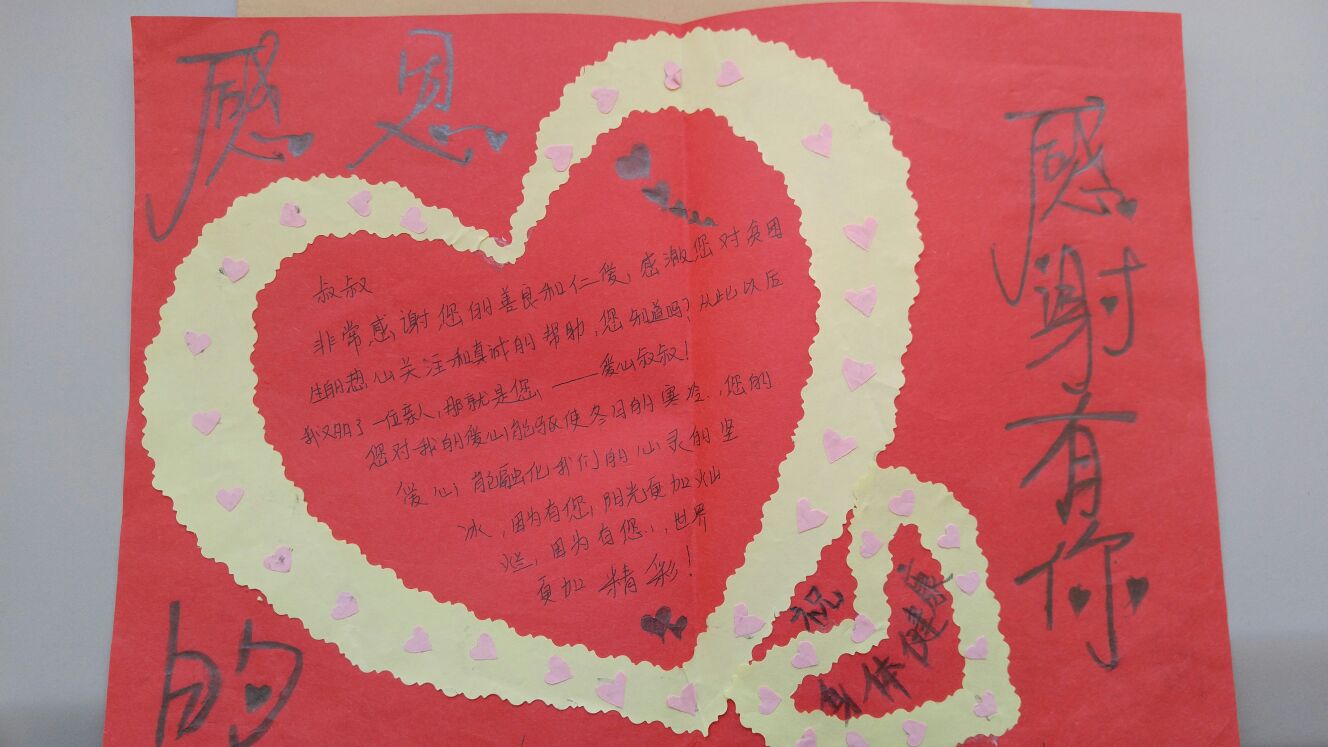 感恩
的
叔叔
非常感谢您的善良和仁爱，感激您对贫困
生的热心关注和真诚的帮助，您知道吗？从此以后
我又多了一位亲人，那就是您——爱心叔叔！
您对我的爱心，能驱使冬日的寒冷，您的
爱心，能融化我们的心灵的坚
冰，因为有您，阳光更加灿
烂，因为有您，世界
更加精彩！
感谢有你
祝
身体健康